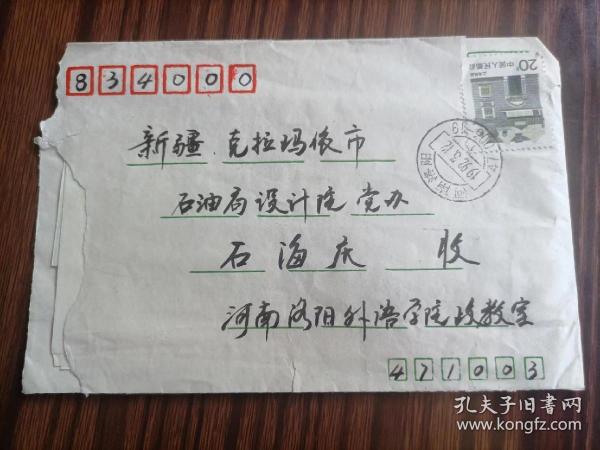 834000
20分 中国人民邮政
新疆 克拉玛依市
石油局设计院党办
石海庆 收
河南洛阳外语学院政教室
471003
河南洛阳
1992.3.12
孔夫子旧书网
www.kongfz.com